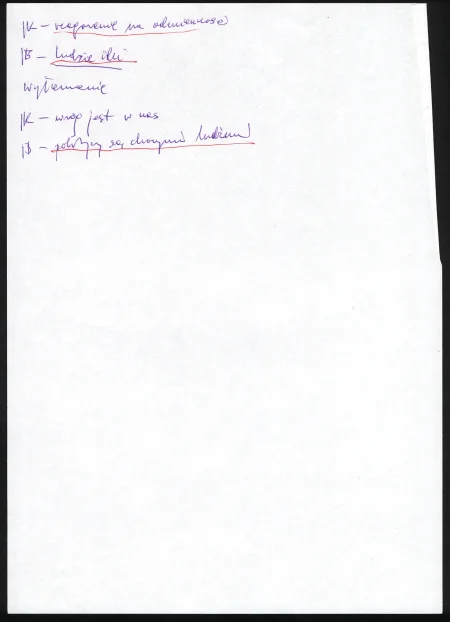 JK – reagowanie na odmienność
JB – ludzie źli
wyłamanie
JK – wróg jest w nas
JB – są chorymi ludźmi